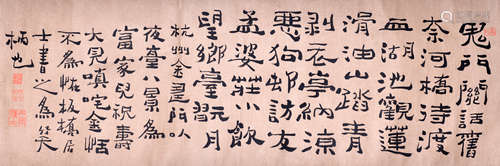 鬼門關話舊
奈河橋待渡
血湖池觀蓮
滑油山踏青
剥衣亭納涼
惡狗邨訪友
孟婆莊小飲
望鄉臺玩月
杭州金壽門以
夜臺八景為
富家兒祝壽
大見嗔咤金恬
不為恠板橋居
士書之為笑
柄也